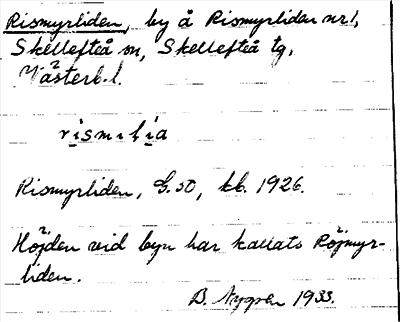 Rismyrliden, by å Rismyrliden nr 1,
Skellefteå sn, Skellefteå tg,
Västerb. l.
Rismyrliden, G. 50, kk. 1926.
Höjden vid byn har kallats Röjmyr-
liden.
B. Nygren 1933.